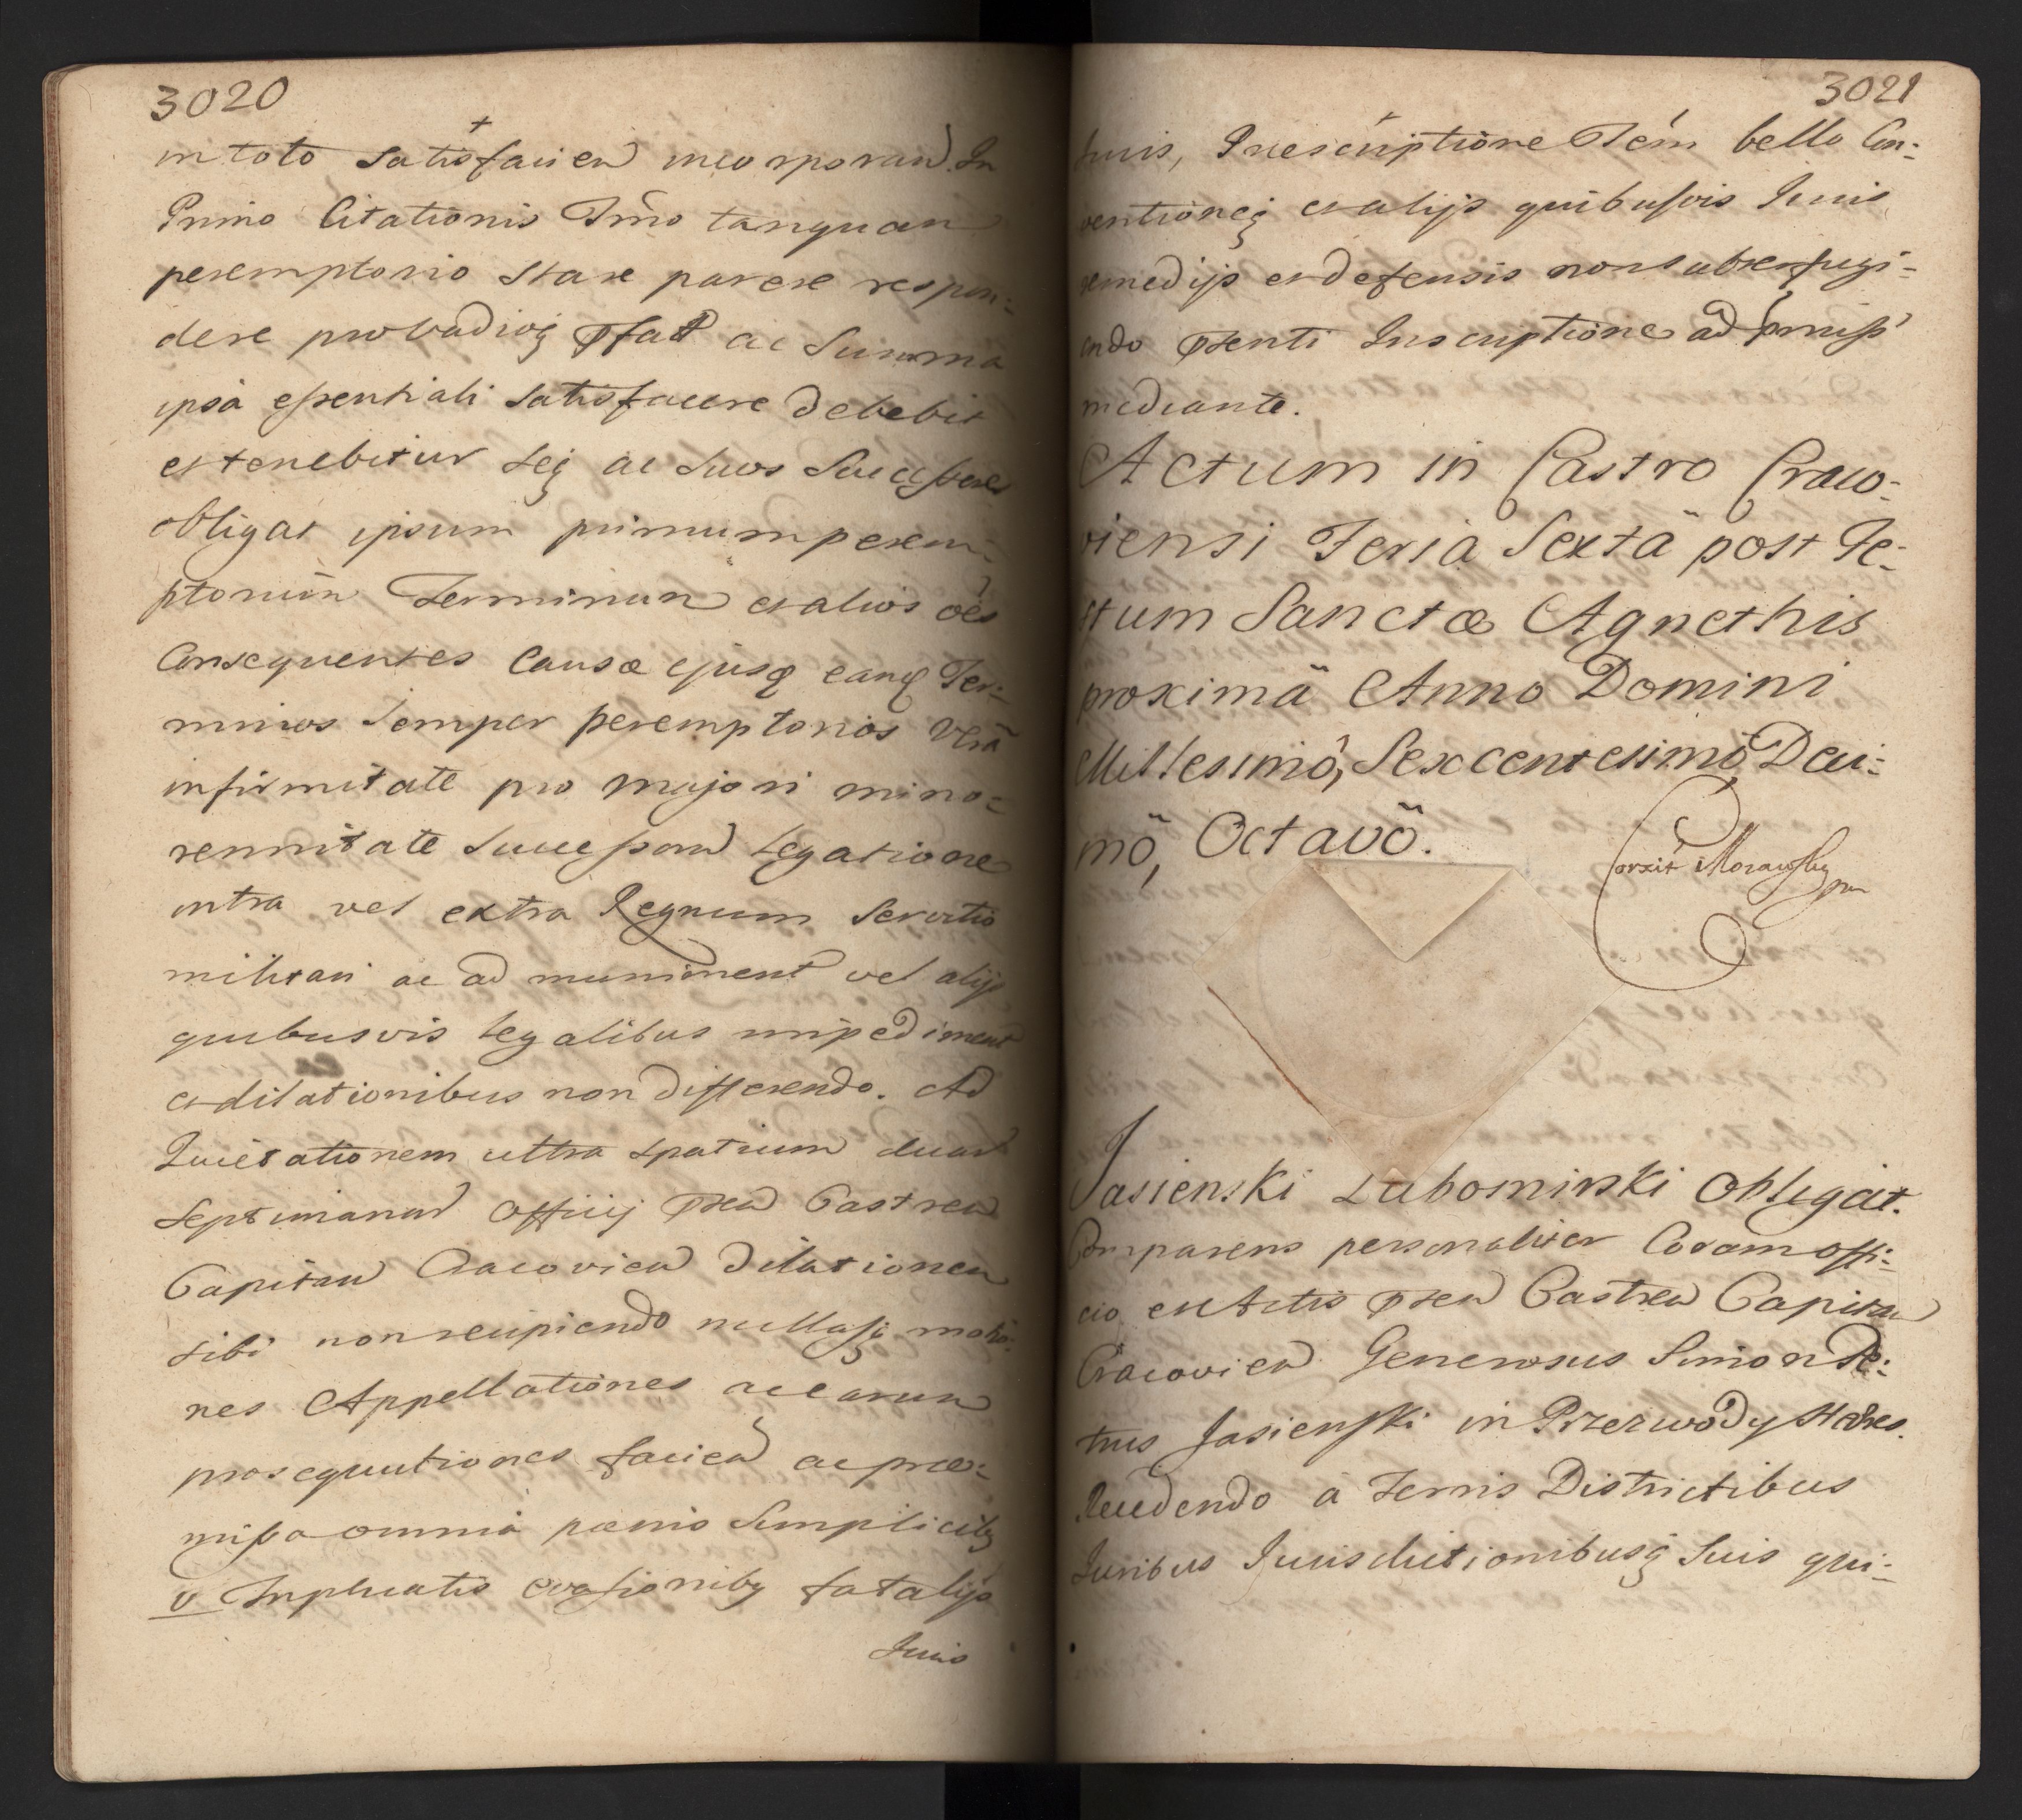 3020
in toto satisfacien incorporand. In
Primo Citationis Tmo tanquam
peremptorio stare parere respon:
dere probadioq pfat ac Summa
ipsa essentiali satisfacere debebit
et tenebitur seq ac suos Successores
obligat ipsum primum perem:
ptorium Terminum et alios oes
Consequentes Causæ ejusq eanq Ter:
minos semper peremptorios Vera
infirmitate pro majori mino:
rennitate Successorum Legatione
intra vel extra Regnum Servitio
militari ac ad muniment vel alijs
quibusvis legalibus impediment
et dilationibus non differendo. Ad
Quietationem ultra spatium duar
septimanar Officij pren Castren
Capitan Cracovien dilationem
sibi non recipiendo nullasq motio:
nes Appellationes ac earum
prosequutiones facien ac præ:
missa omnia pœnis Simplicibq
v Triplicatis evasionibq fatalijs
Juris
3021
Juris, Præscriptione Tem bello Con:
ventioneq et alijs quibusvis Juris
remedijs et defensis non subterfugi:
endo pñti Inscriptione ad pmiss
mediante.
Actum in Castro Craco:
viensi Feria Sexta post Fe:
stum Sanctæ Agnethis
proxima Anno Domini
Millesimo, Sexcentesimo Deci:
mo, Octavo.
Corxit Morawsky
Jasienski Lubomirski Obligat.
Comparens personaliter Coram Offi:
cio et Actis pren Castren Capitan
Cracovien Generosus Simon Pe:
trus Jasienski in Przezwody Hæres.
Recedendo a Terris Districtibus
Juribus Jurisdictionibusq Suis qui: